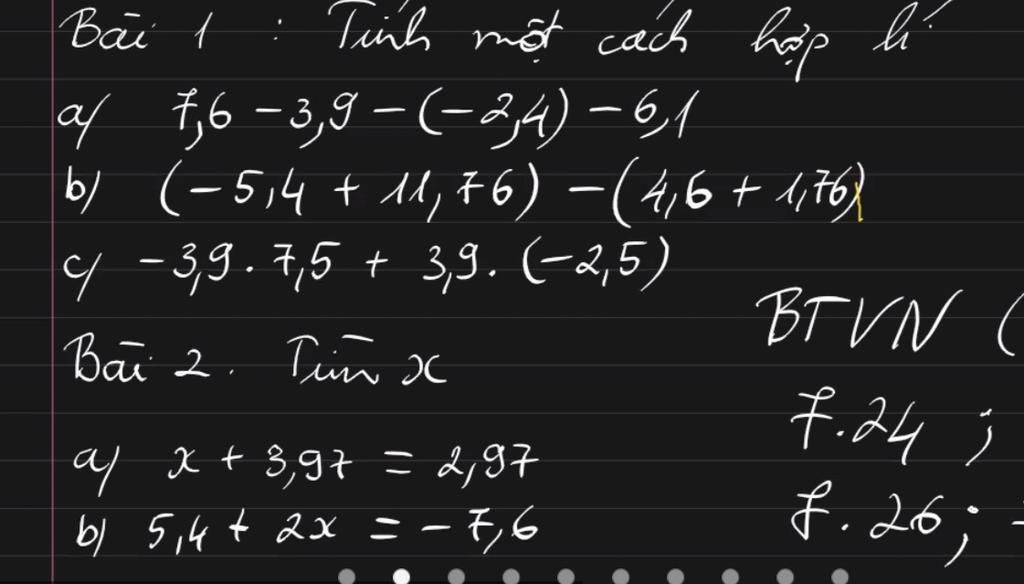 Bài 1 : Tính một cách hợp lí
a/ 7,6 - 3,9 - (-2,4) - 6,1
b) (-5,4 + 11,76) - (4,6 + 1,76)
c/ -3,9 . 7,5 + 3,9 . (-2,5)
BTVN (
Bài 2. Tìm x
7.24 ;
a) x + 3,97 = 2,97
7.26 ; -
b) 5,4 + 2x = -7,6